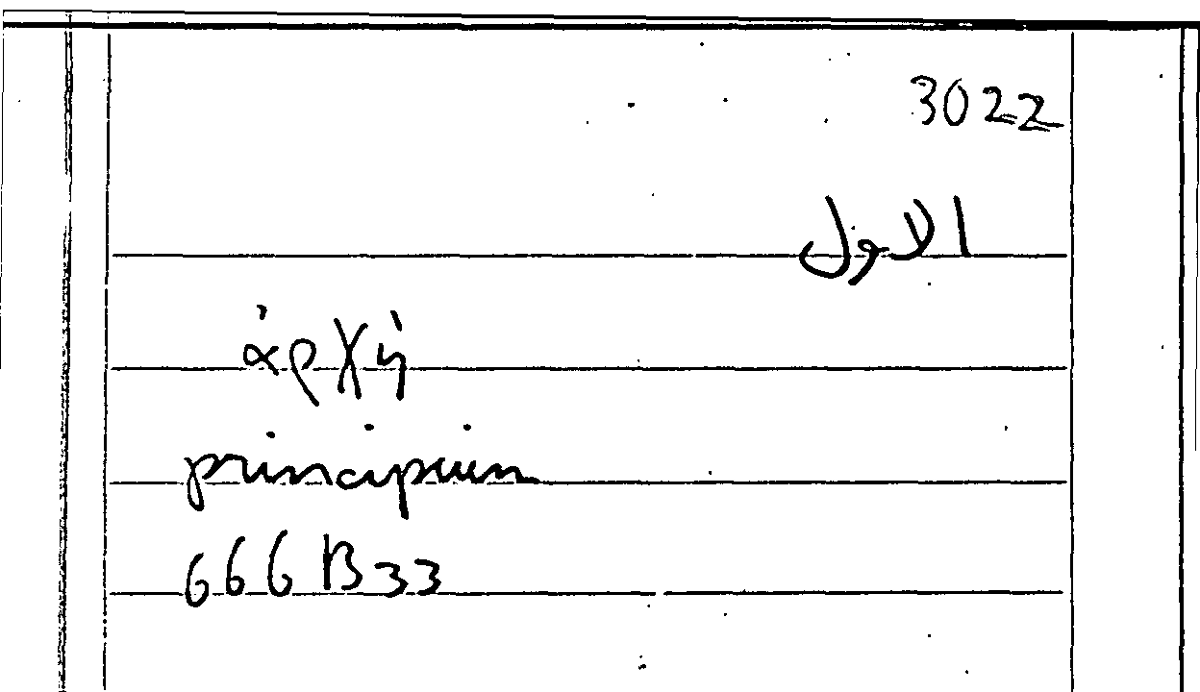 3022
الاول
ἀρχὴ
principium
666 B 33